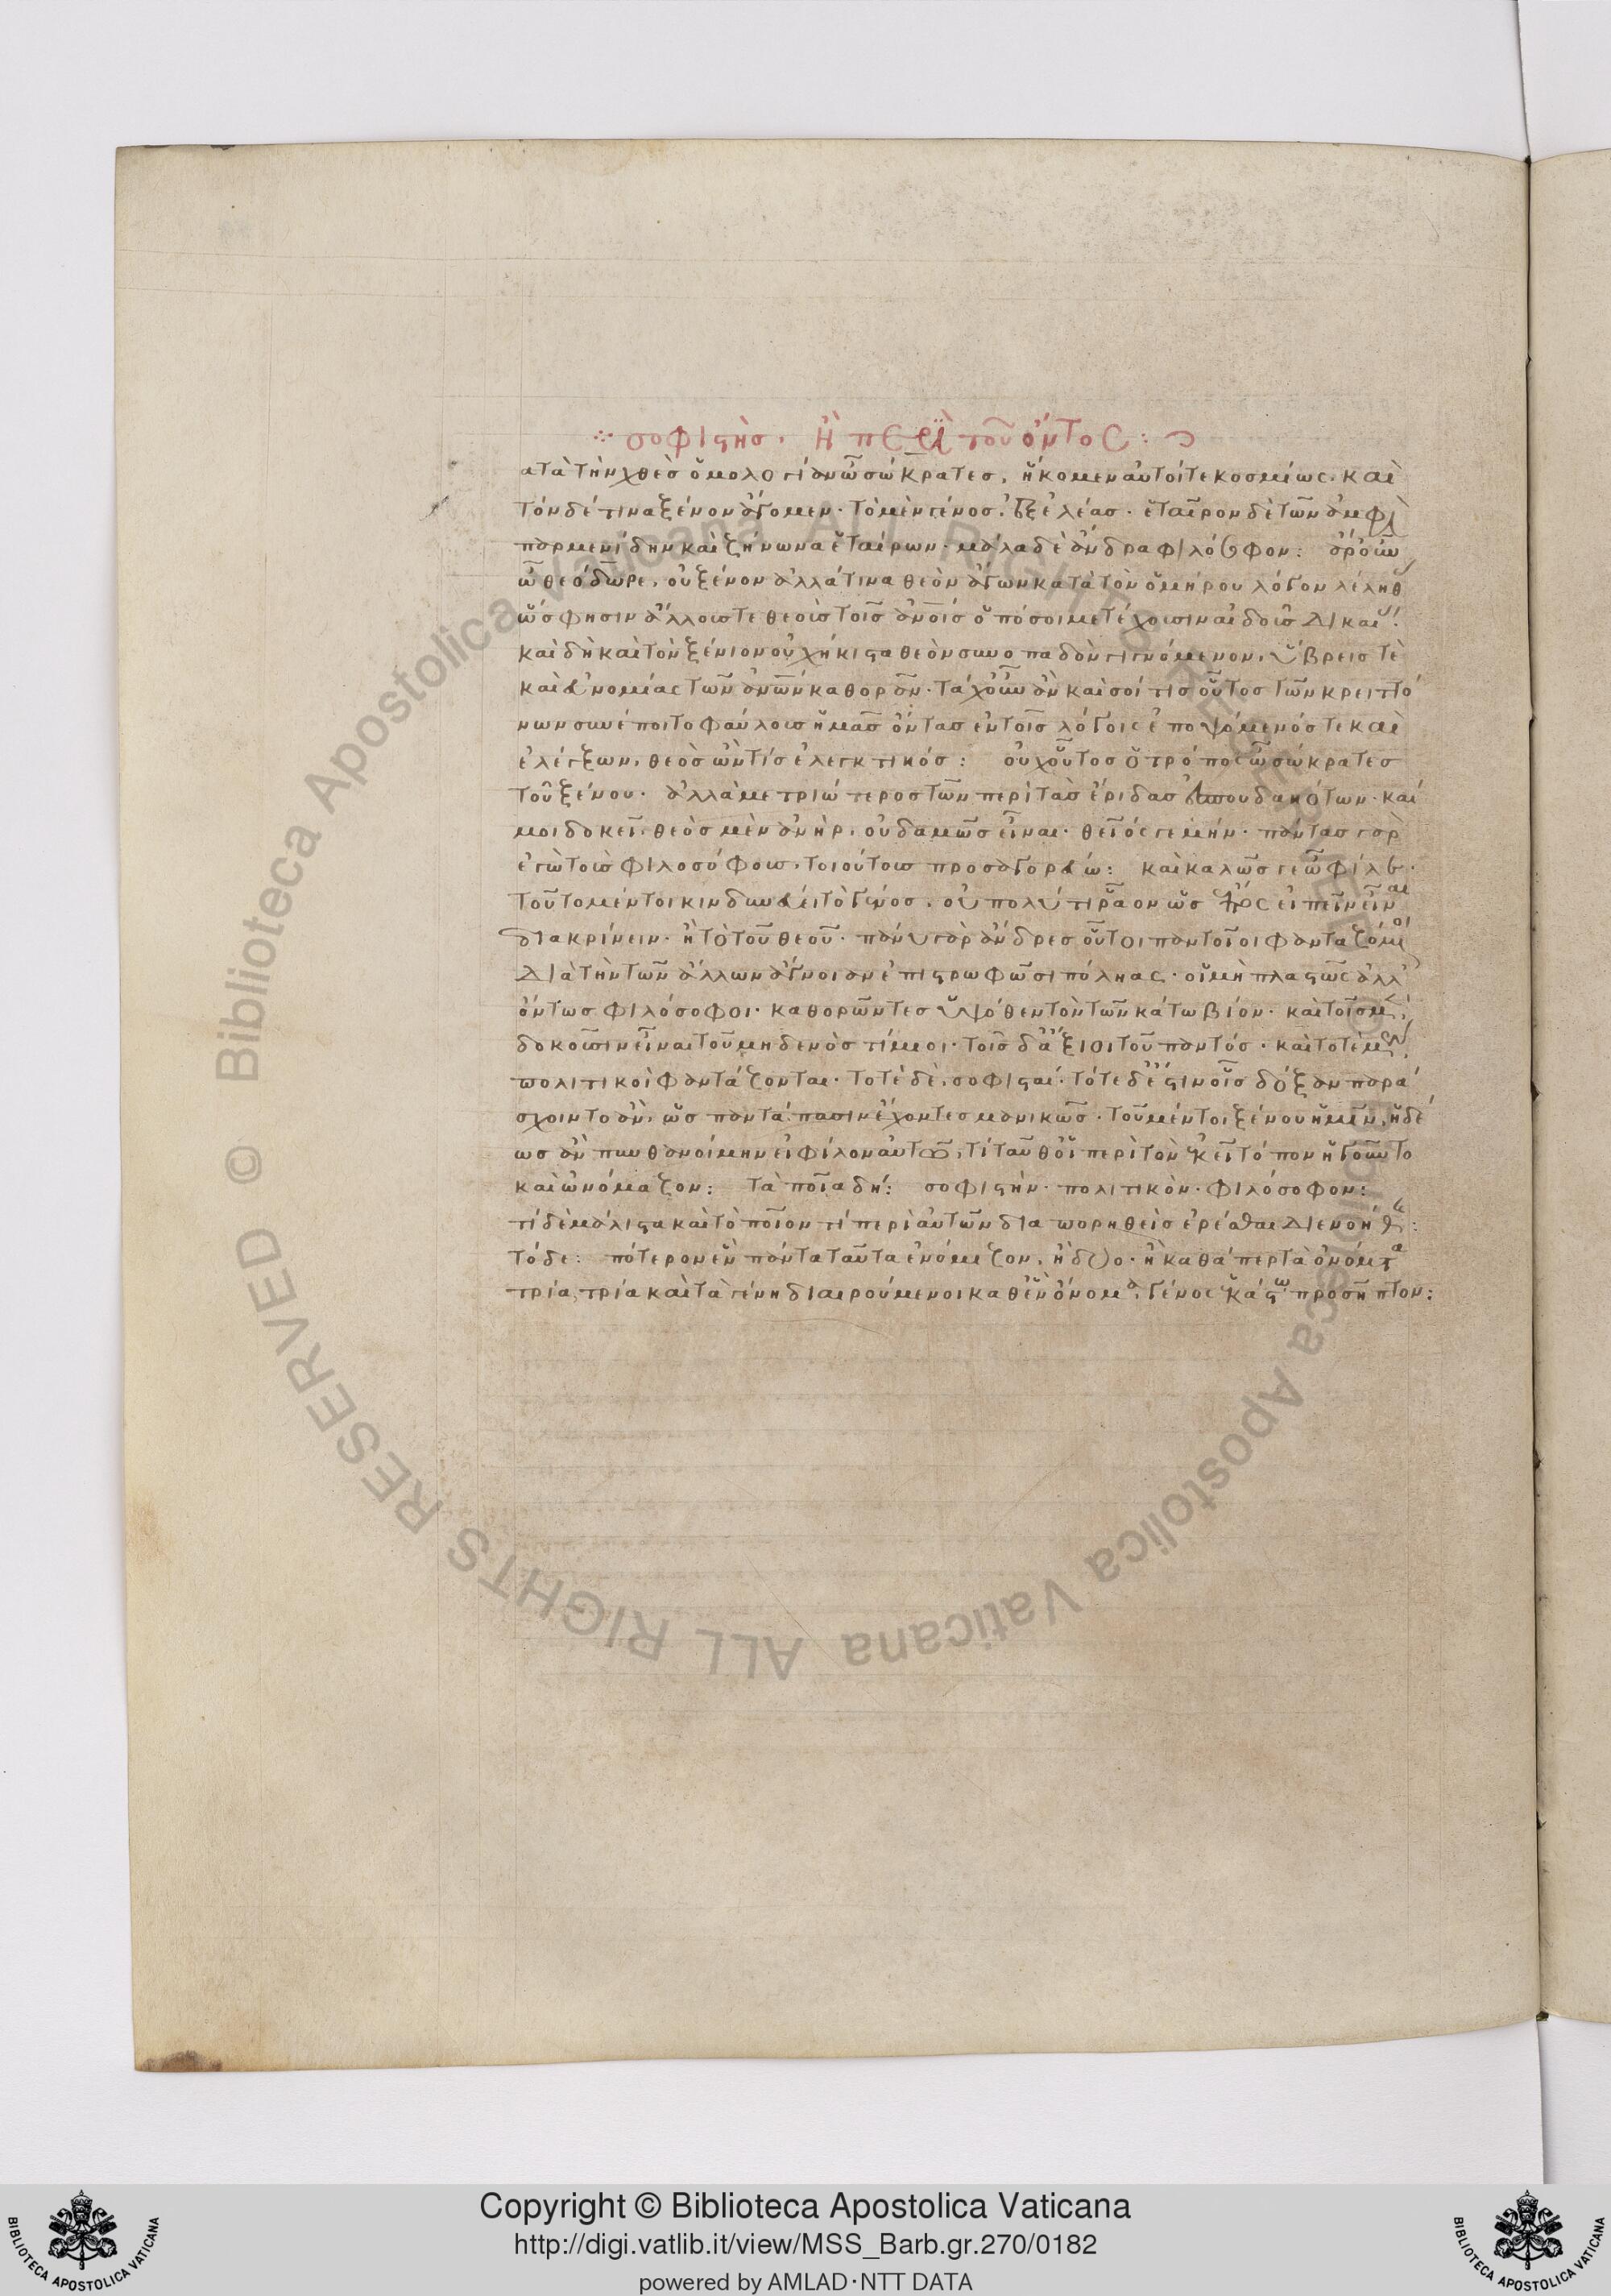 σοφιστὴς· ἢ περὶ τοῦ ὄντος:
ατὰ τὴν χθὲς ὁμολογίαν ὦ σώκρατες, ἥκομεν αὐτοί τε κοσμίως. καὶ
τόνδε τινα ξένον ἄγομεν· τὸ μὲν γένος, ἐξ ἐλέας· ἑταῖρον δὲ τῶν ἀμφὶ
παρμενίδην καὶ ζήνωνα ἑταίρων· μάλα δὲ ἄνδρα φιλόσοφον: ἆρ οὖν
ὦ θεόδωρε, οὐ ξένον ἀλλά τινα θεὸν ἄγων κατὰ τὸν ὁμήρου λόγον λέληθ
ὥς φησιν ἄλλοις τε θεοὺς τοῖς ἀνοις ὁπόσοι μετέχουσιν αἰδοῦς δικαί
καὶ δὴ καὶ τὸν ξένιον οὐχ ἥκιστα θεὸν συνοπαδὸν γιγνόμενον, ὕβρεις τὲ
καὶ εὐνομίας τῶν ἀνων καθορᾶν· τάχ οὖν ἂν καὶ σοί τις οὗτος τῶν κρειττό
νων συνέποιτο φαύλους ἡμᾶς ὄντας ἐν τοῖς λόγοις ἐποψόμενός τε καὶ
ἐλέγξων, θεὸς ὢν τίς ἐλεγκτικός: οὐχ οὗτος ὁ τρόπος ὦ σώκρατες
τοῦ ξένου· ἀλλὰ μετριώτερος τῶν περὶ τὰς ἔριδας ἐσπουδακότων· καί
μοι δοκεῖ θεὸς μὲν ἀνὴρ, οὐδαμῶς εἶναι· θεῖός γε μήν· πάντας γὰρ
ἐγὼ τοὺς φιλοσόφους, τοιούτους προσαγορεύω: καὶ καλῶς γε ὦ φίλε·
τοῦτο μέντοι κινδυνεύει τὸ γένος, οὐ πολύ τι ῥᾶον ὡς ἔπος εἰπεῖν εἶναι
διακρίνειν· ἢ τὸ τοῦ θεοῦ· πάνυ γὰρ ἄνδρες οὗτοι παντοῖοι φανταζόμενοι
διὰ τὴν τῶν ἄλλων ἄγνοιαν ἐπιστρωφῶσι πόληας· οἱ μὴ πλαστῶς ἀλλ
ὄντως φιλόσοφοι· καθορῶντες ὑψόθεν τὸν τῶν κάτω βίον· καὶ τοῖς μὲν
δοκοῦσιν εἶναι τοῦ μηδενὸς τίμιοι· τοῖς δ ἄξιοι τοῦ παντός· καὶ τοτὲ μὲν
πολιτικοὶ φαντάζονται· τοτὲ δὲ, σοφισταί· τότε δ ἔστιν οἷς δόξαν παρά
σχοιντο ἂν, ὡς παντάπασιν ἔχοντες μανικῶς· τοῦ μέντοι ξένου ἡμῖν, ἡδέ
ως ἂν πυνθανοίμην εἰ φίλον αὐτῷ, τί ταῦθ οἱ περὶ τὸν ἐκεῖ τόπον ἡγοῦντο
καὶ ὠνόμαζον: τὰ ποῖα δή: σοφιστήν· πολιτικὸν· φιλόσοφον:
τί δὲ μάλιστα καὶ τὸ ποῖόν τί περὶ αὐτῶν διαπορηθεὶς ἐρέσθαι διενοήθης:
τόδε: πότερον ἓν πάντα ταῦτα ἐνόμιζον, ἢ δύο· ἢ καθάπερ τὰ ὀνόματα
τρία, τρία καὶ τὰ γένη διαιρούμενοι καθ ἓν ὄνομα, γένος ἑκάστῳ προσῆπτον:
Copyright © Biblioteca Apostolica Vaticana
http://digi.vatlib.it/view/MSS_Barb.gr.270/0182
powered by AMLAD·NTT DATA